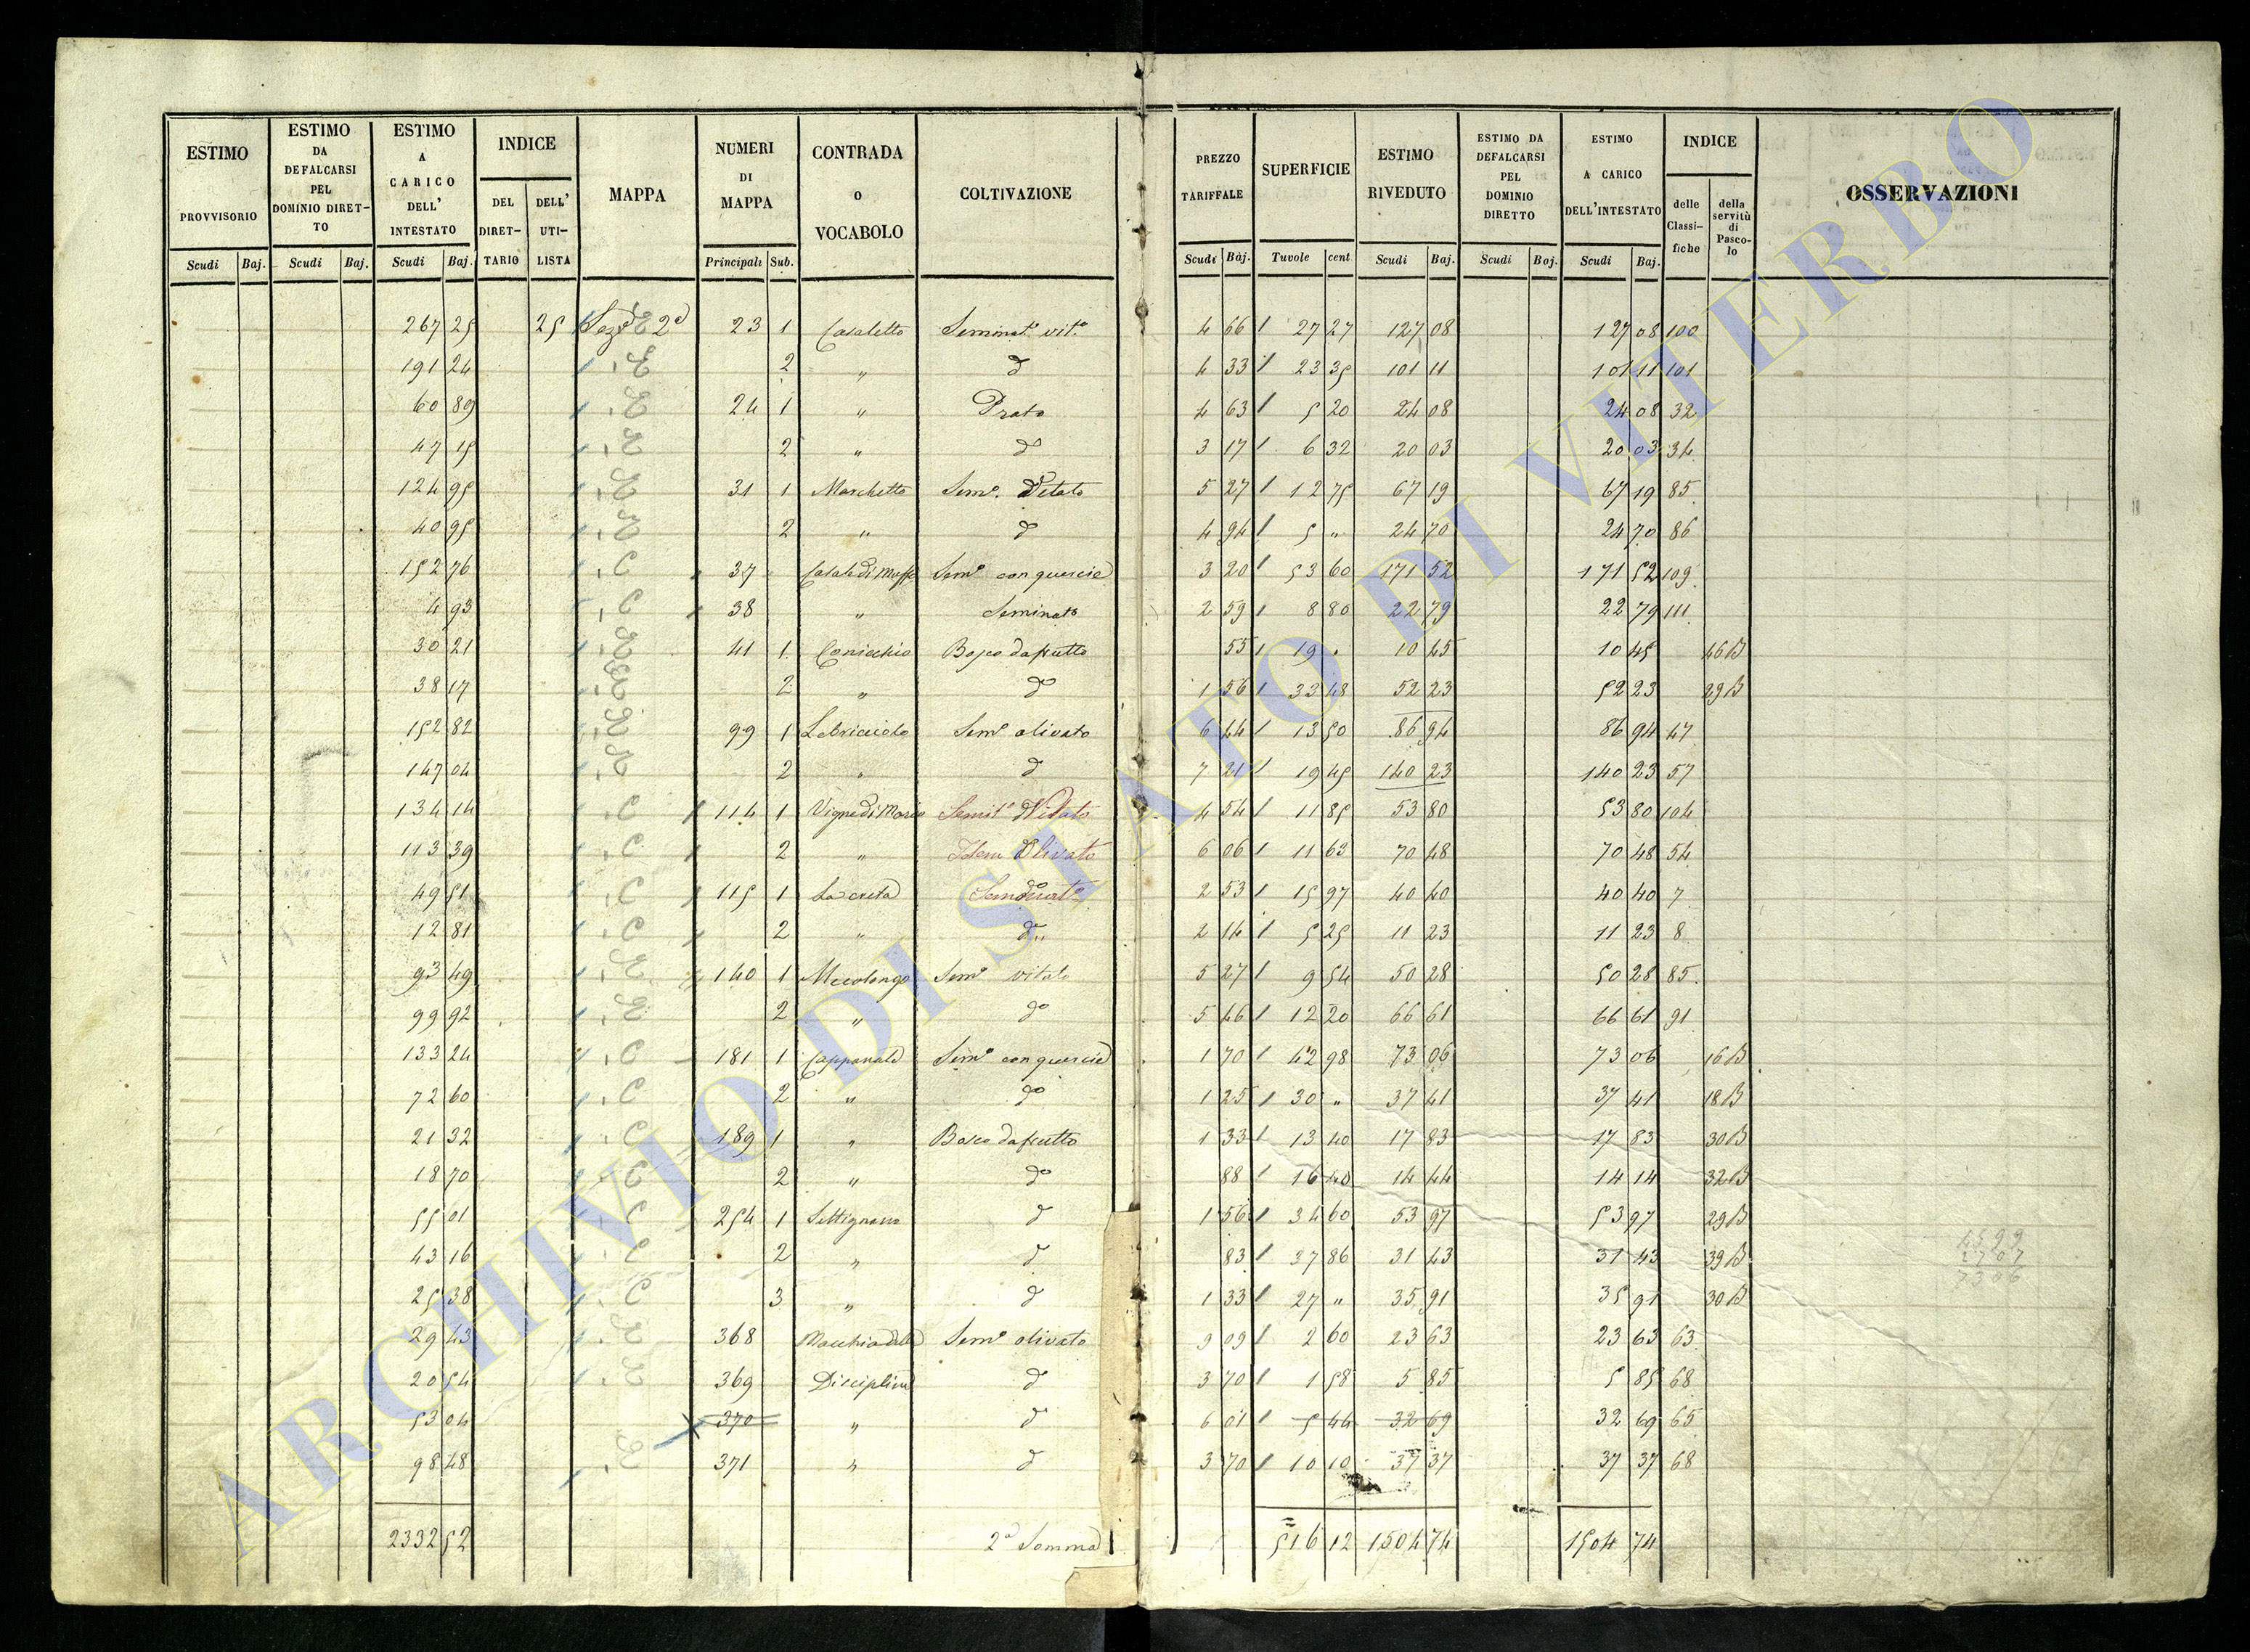 ESTIMO PROVVISORIO
ESTIMO DA DEFALCARSI PEL DOMINIO DIRET-TO
ESTIMO A CARICO DELL' INTESTATO
INDICE
DEL DIRET-TARIO
DELL' UTI-LISTA
MAPPA
NUMERI DI MAPPA
CONTRADA O VOCABOLO
COLTIVAZIONE
PREZZO TARIFFALE
SUPERFICIE
ESTIMO RIVEDUTO
ESTIMO DA DEFALCARSI PEL DOMINIO DIRETTO
ESTIMO A CARICO DELL'INTESTATO
INDICE
delle Classi-fiche
della servitù di Pasco-lo
OSSERVAZIONI
Scudi Baj. Scudi Baj. Scudi Baj. Principali Sub. Scudi Baj. Tavole cent Scudi Baj. Scudi Baj. Scudi Baj.
267 25 25 Seze 2a 23 1 Casaletto Seminato vito 4 66 27 27 127 08 127 08 100
191 24 2 " do 4 33 23 35 101 11 101 11 101
60 89 24 1 " Prato 4 63 5 20 24 08 24 08 32
47 15 2 " do 3 17 6 32 20 03 20 03 34
124 95 31 1 Marchetto Semo Vitato 5 27 12 75 67 19 67 19 85
40 95 2 " do 4 94 5 " 24 70 24 70 86
152 76 37 Casale di Semo con quercie 3 20 53 60 171 52 171 52 109
4 93 38 " Seminato 2 59 8 80 22 79 22 79 111
30 21 41 1 Conicchio Bosco da frutto 55 19 " 10 45 10 45 46B
38 17 2 " do 1 56 33 48 52 23 52 23 29B
152 82 99 1 Semo olivato 6 44 13 50 86 94 86 94 47
147 04 2 " do 7 21 19 45 140 23 140 23 57
134 14 114 1 Vigne di Vitato 4 54 11 85 53 80 53 80 104
113 39 2 " Olivato 6 06 11 63 70 48 70 48 54
49 51 115 1 La creta 2 53 15 97 40 40 40 40 7
12 81 2 " do 2 14 5 25 11 23 11 23 8
93 49 140 1 Semo vitato 5 27 9 54 50 28 50 28 85
99 92 2 " do 5 46 12 20 66 61 66 61 91
133 24 181 1 Semo con quercie 1 70 42 98 73 06 73 06 16B
72 60 2 " do 1 25 30 " 37 41 37 41 18B
21 32 189 1 " Bosco da frutto 1 33 13 40 17 83 17 83 30B
18 70 2 " do 88 16 40 14 44 14 14 32B
55 01 254 1 Settignano do 1 56 34 60 53 97 53 97 29B
43 16 2 " do 83 37 86 31 43 31 43 39B
25 38 3 " do 1 33 27 " 35 91 35 91 30B
29 43 368 Macchia della Semo olivato 9 09 2 60 23 63 23 63 63
20 54 369 Disciplina do 3 70 1 58 5 85 5 85 68
53 04 370 " do 6 01 5 44 32 69 32 69 65
98 48 371 " do 3 70 10 10 37 37 37 37 68
2332 52 2a Somma 516 12 1504 74 1504 74
4599
2707
7306
ARCHIVIO DI STATO DI VITERBO